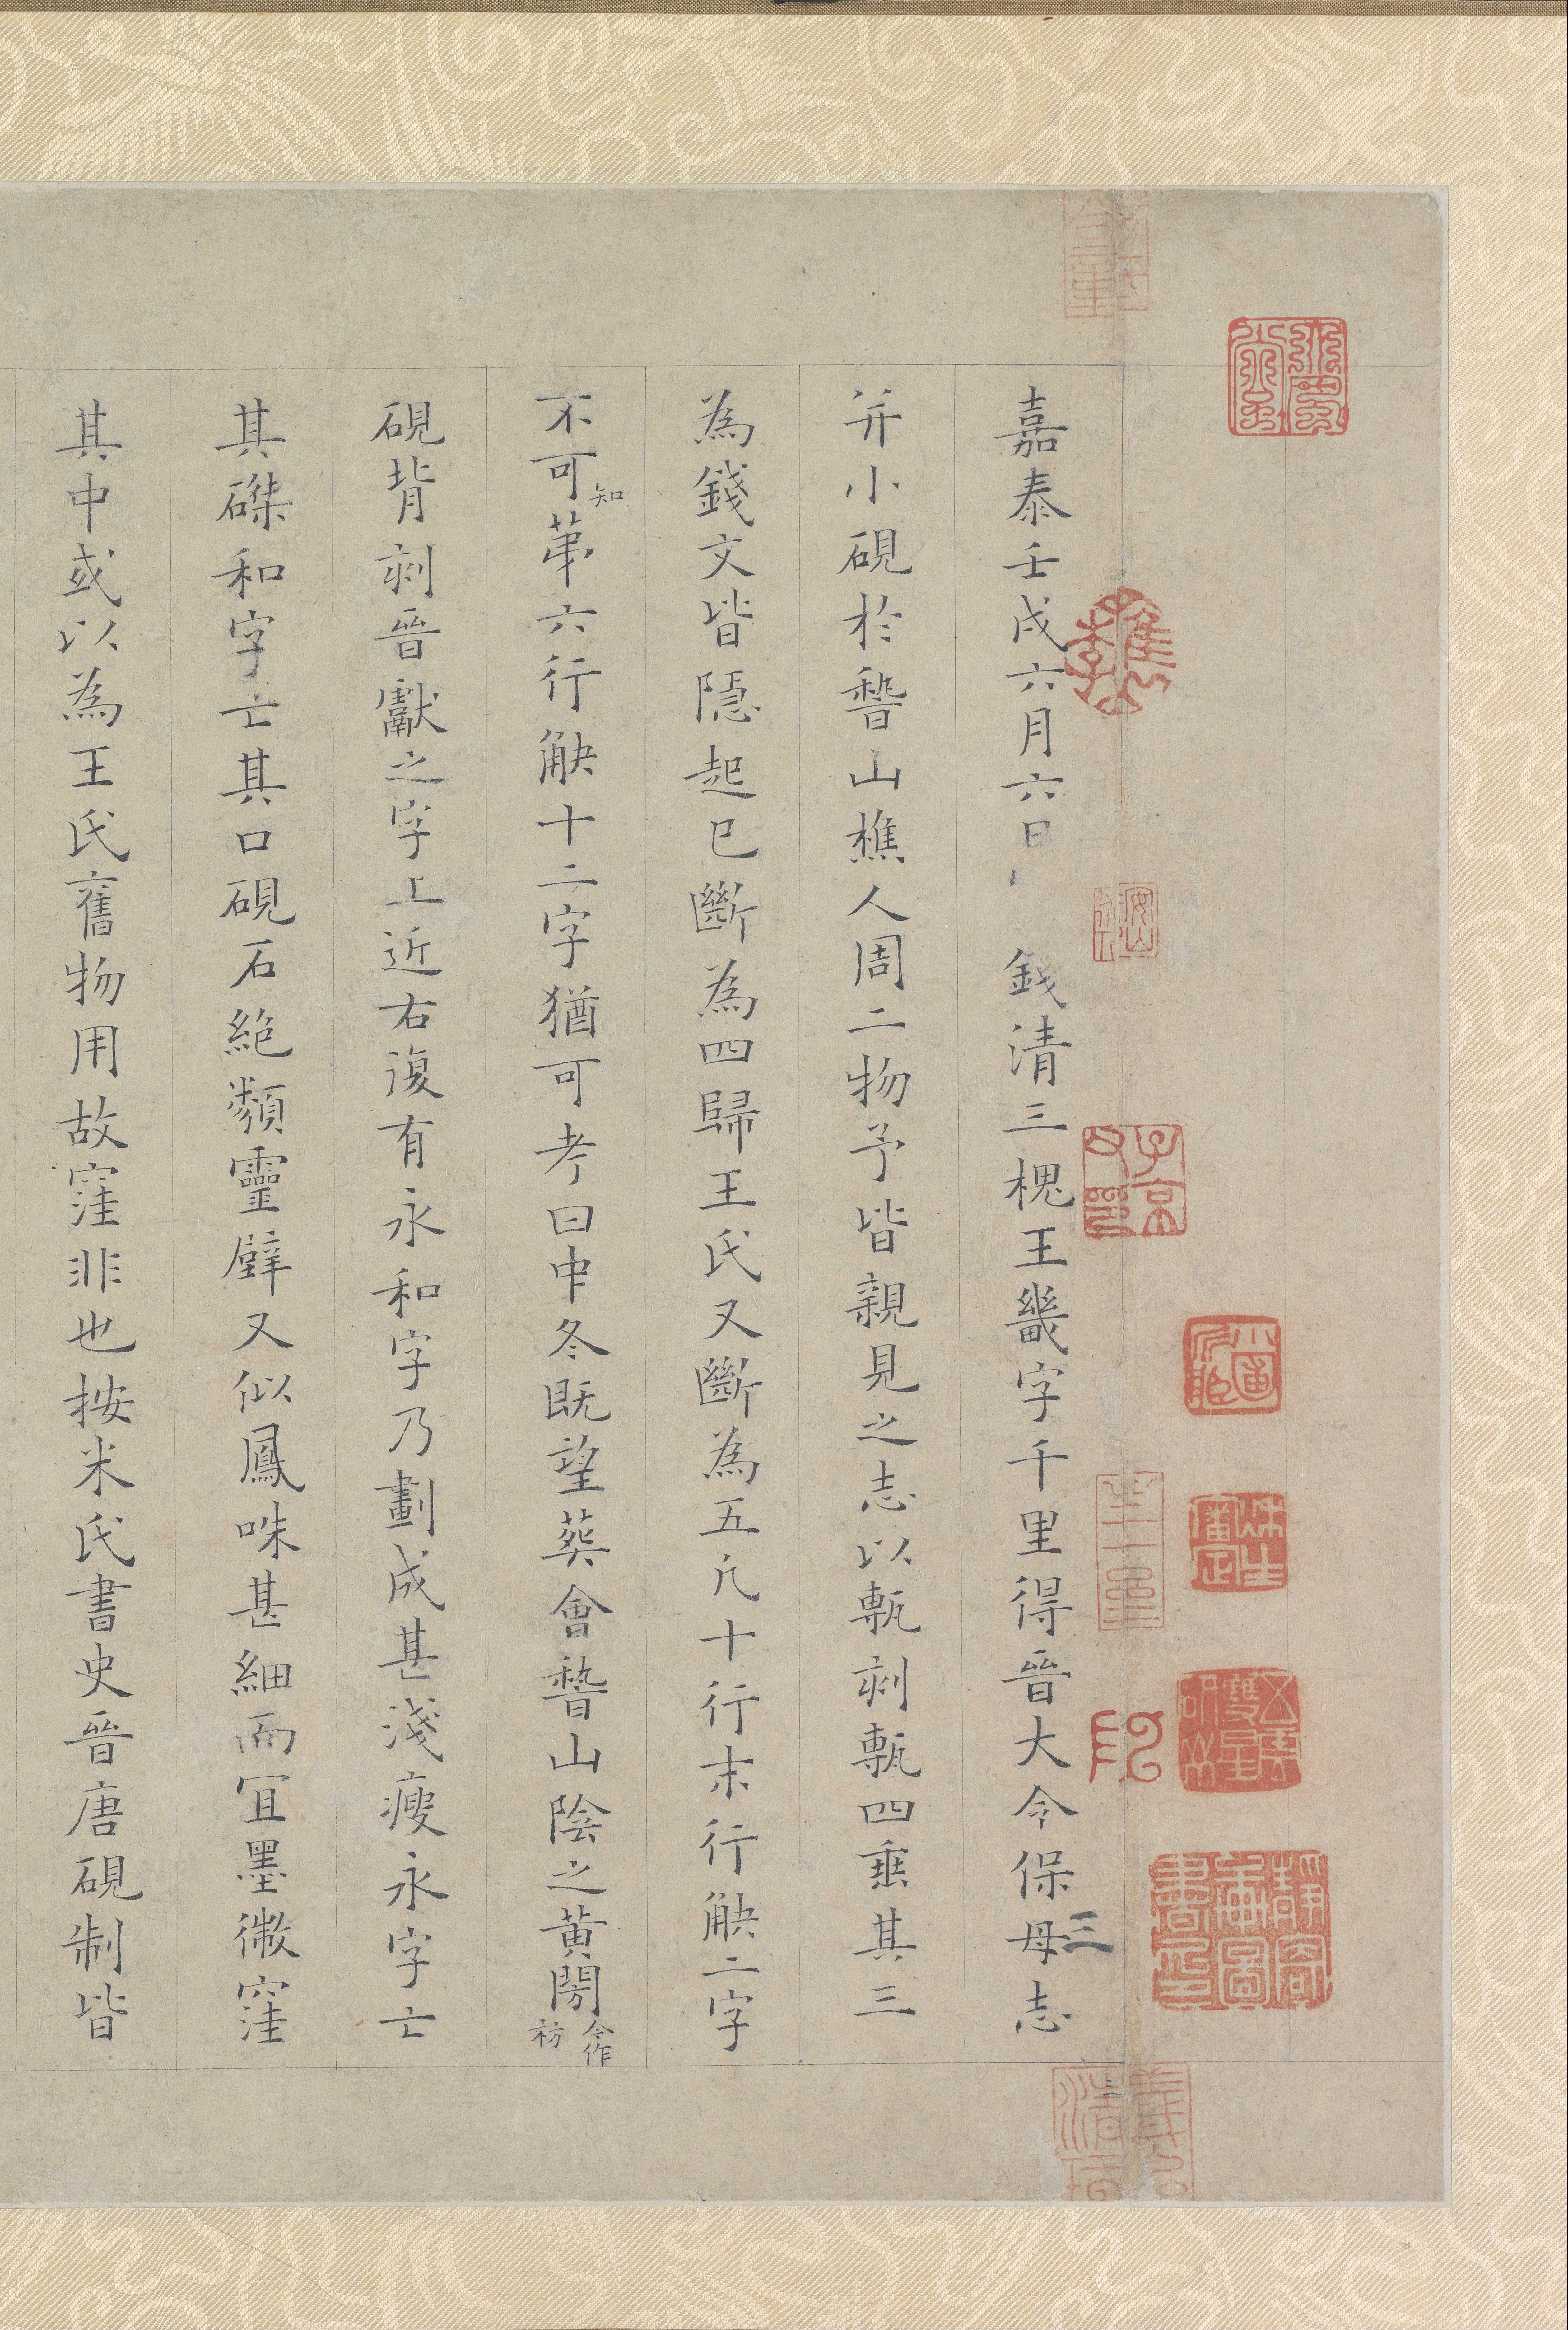 嘉泰壬戌六月六日 錢清三槐王畿字千里得晉大令保母志
并小硯於稽山樵人周二物予皆親見之志以甎刻甎四垂其三
為錢文皆隱起已斷為四歸王氏又斷為五凢十行末行觖二字
不可知苐六行觖十二字猶可考曰中冬既望葵會稽山陰之黃閍今作祊
硯背刻晉獻之字上近右復有永和字乃劃成甚淺瘦永字亡
其磔和字亡其口硯石絶類靈壁又似鳳咮甚細而宜墨微窪
其中或以為王氏舊物用故窪非也按米氏書史晉唐硯制皆
三
子京父印